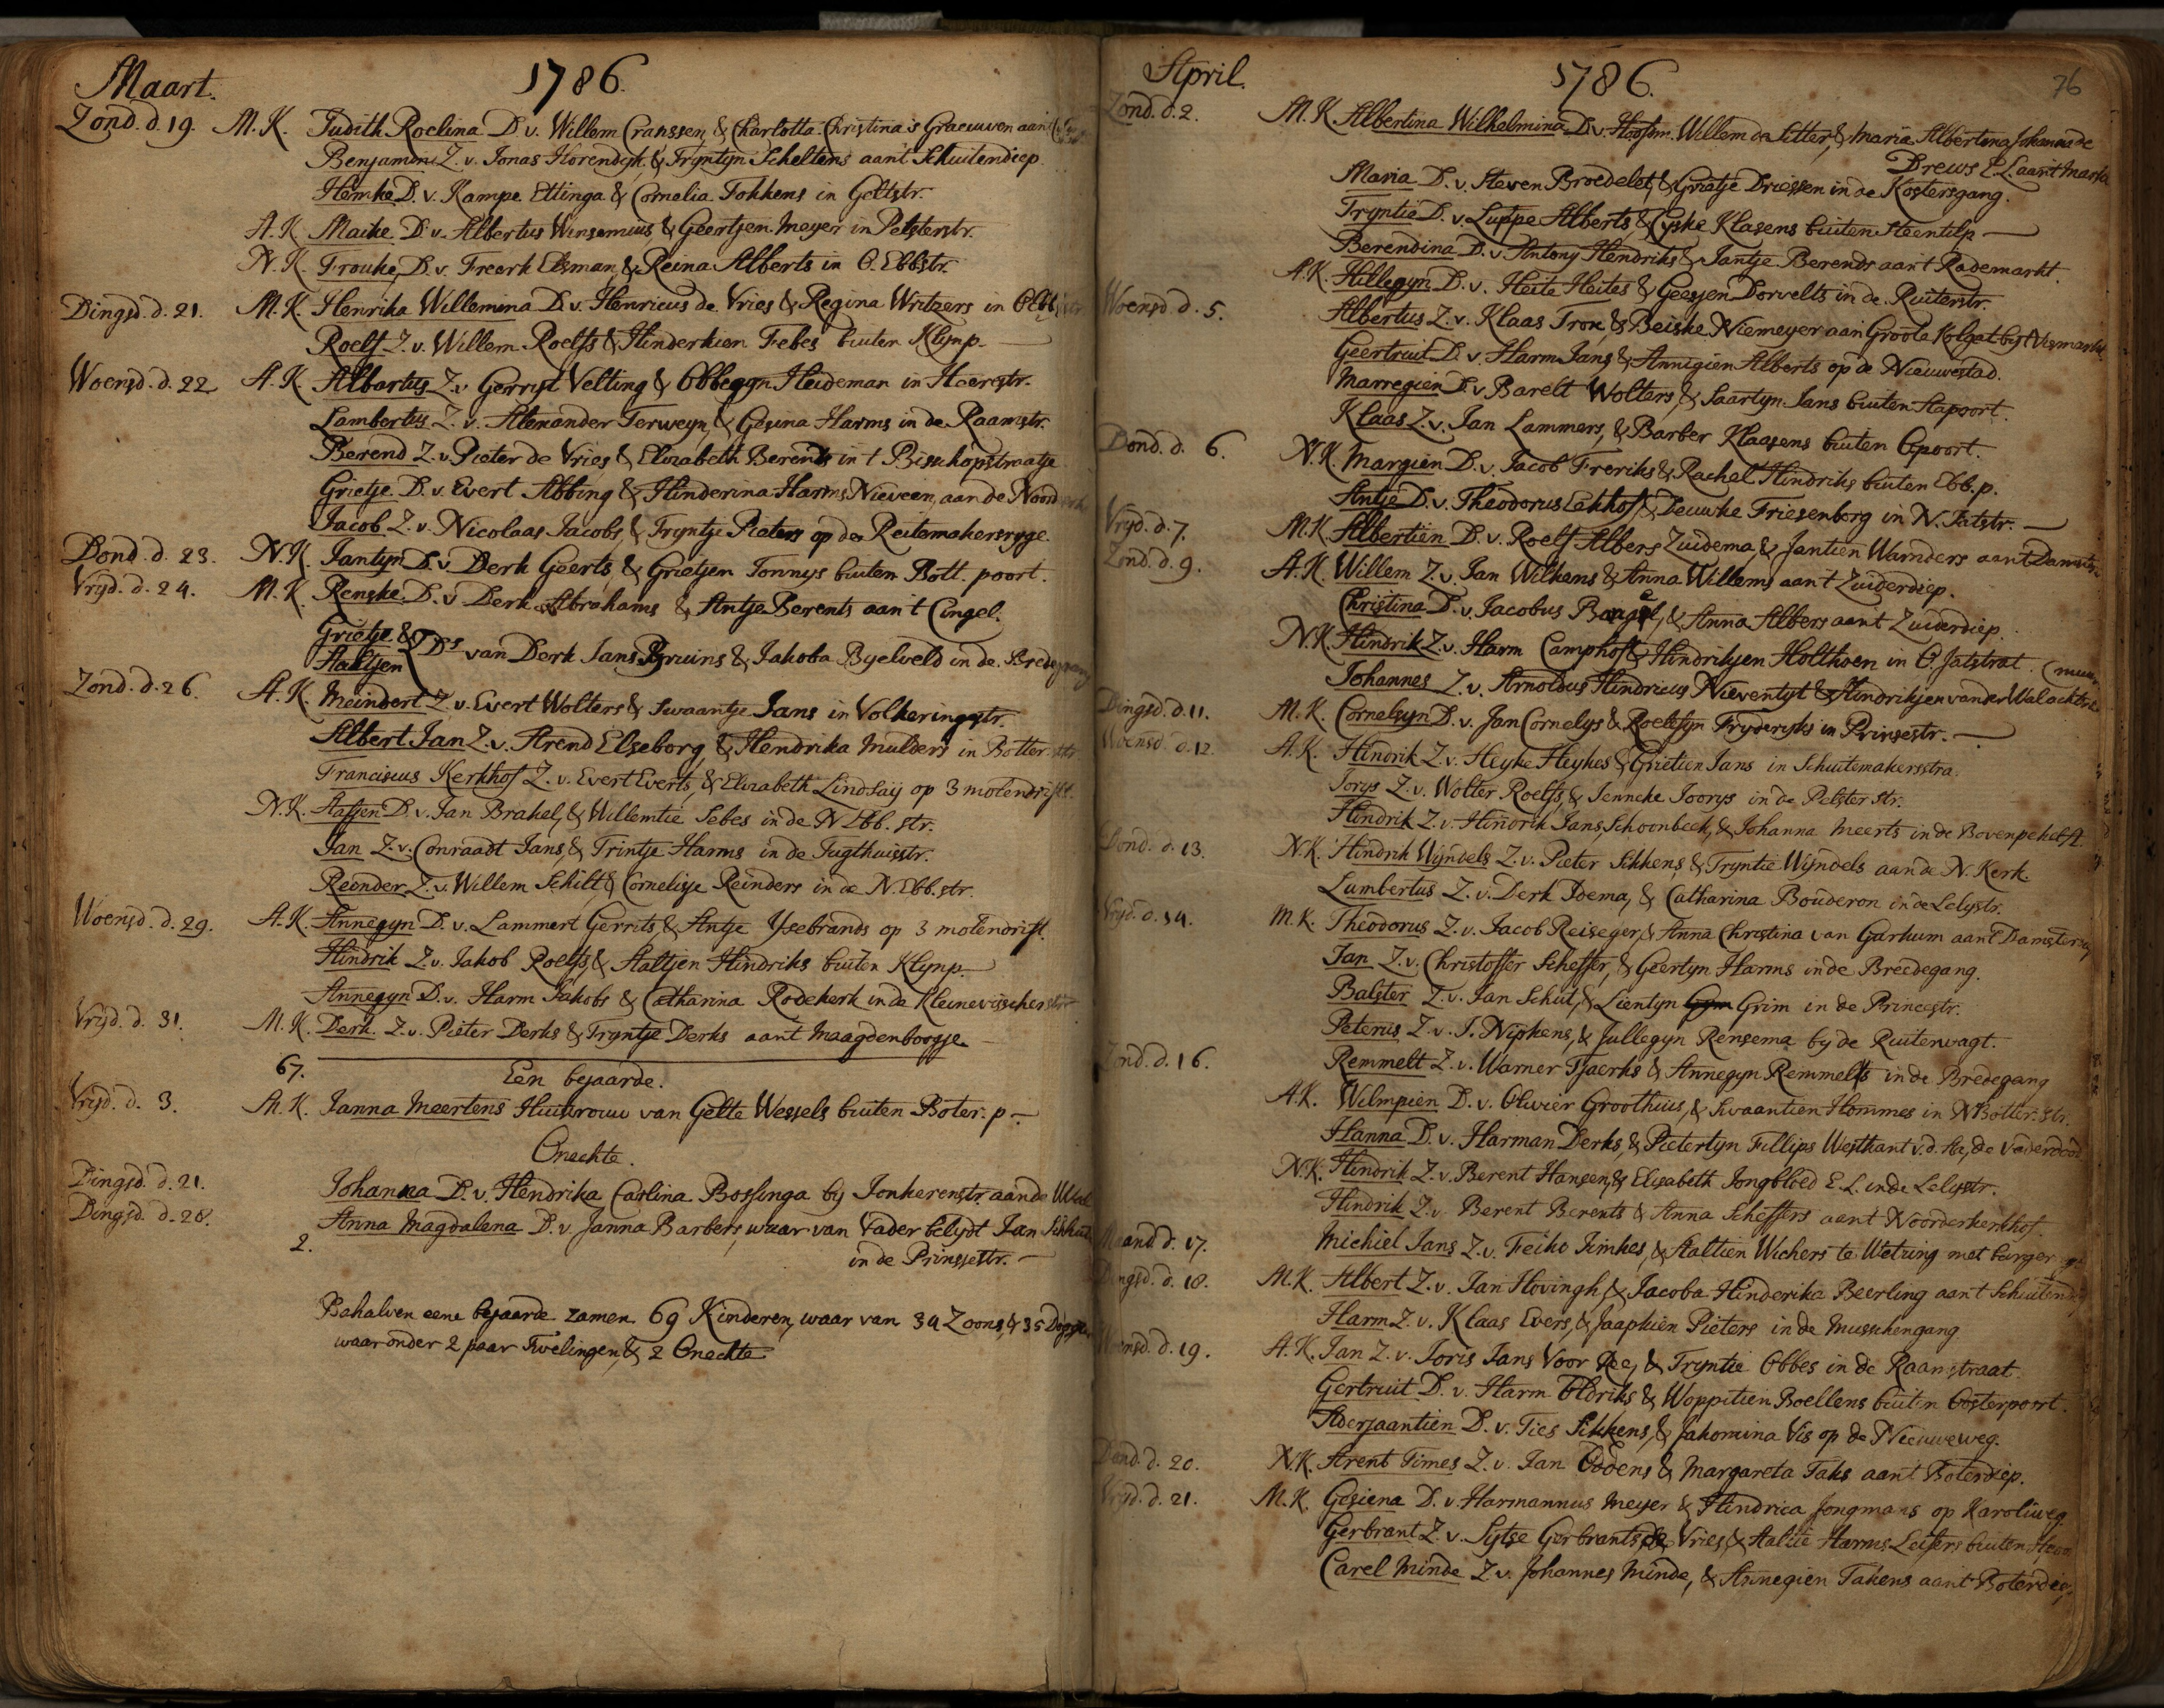 Maart. 1786.
Zond. d. 19. M. K. Judith Roelina D. v. Willem Cranssen, & Charlotta Christina 's Graeuwen aan
Benjamin Z. v. Jonas Horendyk, & Tryntyn Scheltens aan't Schuitendiep.
Hemke D. v. Kampe Ettinga & Cornelia Fokkens in Geltstr.
A. K. Maike D. v. Albertus Winsemius & Geertjen Meyer in Pelsterstr.
N. K. Frouke, D. v. Freerk Elsman, & Reina Alberts in O. Ebbstr.
Dingsd. d. 21. M. K. Henrika Willemina D. v. Henricus de Vries & Regina Writzers in O. Ebb
Roelf Z. v. Willem Roelfs & Hinderkien Febes buiten Klynp.
Woensd. d. 22 A. K. Albartus Z. v. Gerryt Velting & Obbegyn Heideman in Heerestr.
Lambertus Z. v. Alexander Terweyn, & Gesina Harms in de Raamstr.
Berend Z. v. Pieter de Vries & Elizabeth Berends in 't Bisschopstraatje
Grietje D. v. Evert Abbing & Hinderina Harms Nieveen, aan de Noord
Jacob Z. v. Nicolaas Jacobs, & Tryntje Pieters op der Reitemakersryge.
Dond. d. 23. N. K. Jantyn D. v. Derk Geerts, & Grietjen Tonnys buiten Bott. poort.
Vryd. d. 24. M. K. Renske D. v. Derk Abrahams & Antje Berents aan 't Cingel.
Grietje &
Aaltjen Ds van Derk Jans Bruins & Jakoba Byelveld in de Bredegang
Zond. d. 26. A. K. Meindert Z. v. Evert Wolters & Swaantje Jans in Volkeringstr.
Albert Jan Z. v. Arend Elseborg, & Hendrika Mulders in Botter str
Franciscus Kerkhof Z. v. Evert Everts, & Elizabeth Lindsaij op 3 molendrift.
N. K. Aafjen D. v. Jan Brakel, & Willemtie Sebes in de N Ebb. str.
Jan Z. v. Conraadt Jans, & Trintje Harms in de Tugthuisstr.
Reinder Z. v. Willem Schilt, & Cornelisje Reinders in de N. Ebb. str.
Woensd. d. 29. A. K. Annegyn D. v. Lammert Gerrits, & Antje Ysebrands op 3 molendrift.
Hindrik Z. v. Jakob Roelfs, & Aaltjen Hindriks buiten Klynp.
Annegyn D. v. Harm Jakobs & Catharina Rodekerk in de Kleinevisscherstr
Vryd. d. 31. M. K. Derk Z. v. Pieter Derks & Tryntje Derks aan't Maagdenborgje.
67.
Een bejaarde.
Vryd. d. 3. M. K. Janna Meertens Huisvrouw van Gelte Wessels buiten Boter. p.
Onechte.
Dingsd. d. 21. Johanna D. v. Hendrika Carlina Bossinga by Jonkerenstr. aan de Wal
Dingsd. d. 28. Anna Magdalena D. v. Janna Barbers, waar van Vader belydt Jan Sikkens
2. in de Prinssestr.
Behalven eene bejaarde zamen 69 Kinderen, waar van 34 Zoons, & 35 Dogters
waar onder 2 paar Twelingen, & 2 Onechte
April. 1786. 76
Zond. d. 2. M. K. Albertina Wilhelmina D. v. Hoofm. Willem de Sitter, & Maria Albertina Johanna de
Drews E. L. aan't Markt
Maria D. v. Steven Broedelet, & Grietje Driessen in de Kostersgang.
Tryntie D. v. Luppe Alberts, & Cyske Klasens buiten Steentilp
Berendina D. v. Antony Hendriks & Jantje Berends aan't Rademarkt.
Woensd. d. 5. A. K. Hillegyn D. v. Heite Heites & Geesjen Dorvelts in de Ruiterstr.
Albertus Z. v. Klaas Tron, & Beiske Niemeyer aan Groote Kolgat by't Vismarkt
Geertruit D. v. Harm Jans, & Annigien Alberts op de Nieuwestad.
Marregien D. v. Barelt Wolters, & Saartyn Jans buiten Apoort.
Klaas Z. v. Jan Lammers, & Barber Klaasens buiten Opoort.
Dond. d. 6. N. K. Margien D. v. Jacob Freriks & Rachel Hindriks buiten Ebb. p.
Antje D. v. Theodorus Eekhof & Deuwke Friesenborg in N. Jatstr.
Vryd. d. 7. M. K. Albertien D. v. Roelf Albers Zuidema, & Jantien Warnders aan't Damster
Zond. d. 9. A. K. Willem Z. v. Jan Wilkens & Anna Willems aan't Zuiderdiep.
Christina D. v. Jacobus Bangel, & Anna Albers aan't Zuiderdiep.
N. K. Hindrik Z. v. Harm Camphof & Hindrikjen Holthoen in O. Jatstrat.
Johannes Z. v. Arnoldus Hindricus Nieventyt & Hindrikjen van der Wal
Dingsd. d. 11. M. K. Cornelsyn D. v. Jan Cornelys & Roelefyn Fryderyks in Prinsestr.
Woensd. d. 12. A. K. Hindrik Z. v. Heyke Heykes & Grietien Jans in Schuitemakersstra.
Jorys Z. v. Wolter Roelfs, & Jenneke Joorys in de Pelsterstr.
Hindrik Z. v. Hindrik Jans Schoonbeek, & Johanna Meerts in de Bovenpekelst.
Dond. d. 13. N. K. Hindrik Wyndels Z. v. Pieter Sikkens, & Tryntie Wyndels aan de N. Kerk.
Lambertus Z. v. Derk Doema, & Catharina Bouderon in de Lelystr.
Vryd. d. 14. M. K. Theodorus Z. v. Jacob Reiseger, & Anna Christina van Garhum aan't Damster
Jan Z. v. Christoffer Scheffer, & Geertyn Harms in de Breedegang.
Balster Z. v. Jan Schut, & Lientyn Grim in de Princestr.
Peterus Z. v. J. Nipkens, & Jullegyn Rensema by de Ruiterwagt.
Zond. d. 16. Remmelt Z. v. Warner Tjaerks & Annegyn Remmelts in de Bredegang
A. K. Wilmpien D. v. Olivier Groothuis, & Swaantien Hommes in N Botter. Str.
Hanna D. v. Harman Derks, & Pietertyn Fillips Westkant v. d. Aa, de Vader dood
N. K. Hindrik Z. v. Berent Hansen, & Elisabeth Jongbloed E. L. in de Lelystr.
Hindrik Z. v. Berent Berents & Anna Scheffers aan't Noorderkerkhof.
Maand d. 17. Michiel Jans Z. v. Feiko Jimkes, & Aaltien Wichers te Wetzing met burger
Dingsd. d. 18. M. K. Albert Z. v. Jan Hovingh, & Jacoba Hinderika Beerling aan't Schuitend
Harm Z. v. Klaas Evers, & Jaapkien Pieters in de Musschengang
Woensd. d. 19. A. K. Jan Z. v. Joris Jans Voor Ree, & Tryntie Obbes in de Raamstraat
Gertruit D. v. Harm Oldriks & Woppitien Boellens buiten Oosterpoort.
Aderjaantien D. v. Ties Sikkens, & Jakomina Vis op de Nieuweweg.
Dond. d. 20. N. K. Arent Times Z. v. Jan Oddens & Margareta Taks aan't Boterdiep.
Vryd. d. 21. M. K. Gesiena D. v. Harmannus Meyer & Hindrica Jongmans op Karoliweg
Gerbrant Z. v. Sytse Gerbrants de Vries, & Aaltie Harms Leifers buiten Steen
Carel Minde Z. v. Johannes Minde, & Annegien Takens aan't Boterdiep,